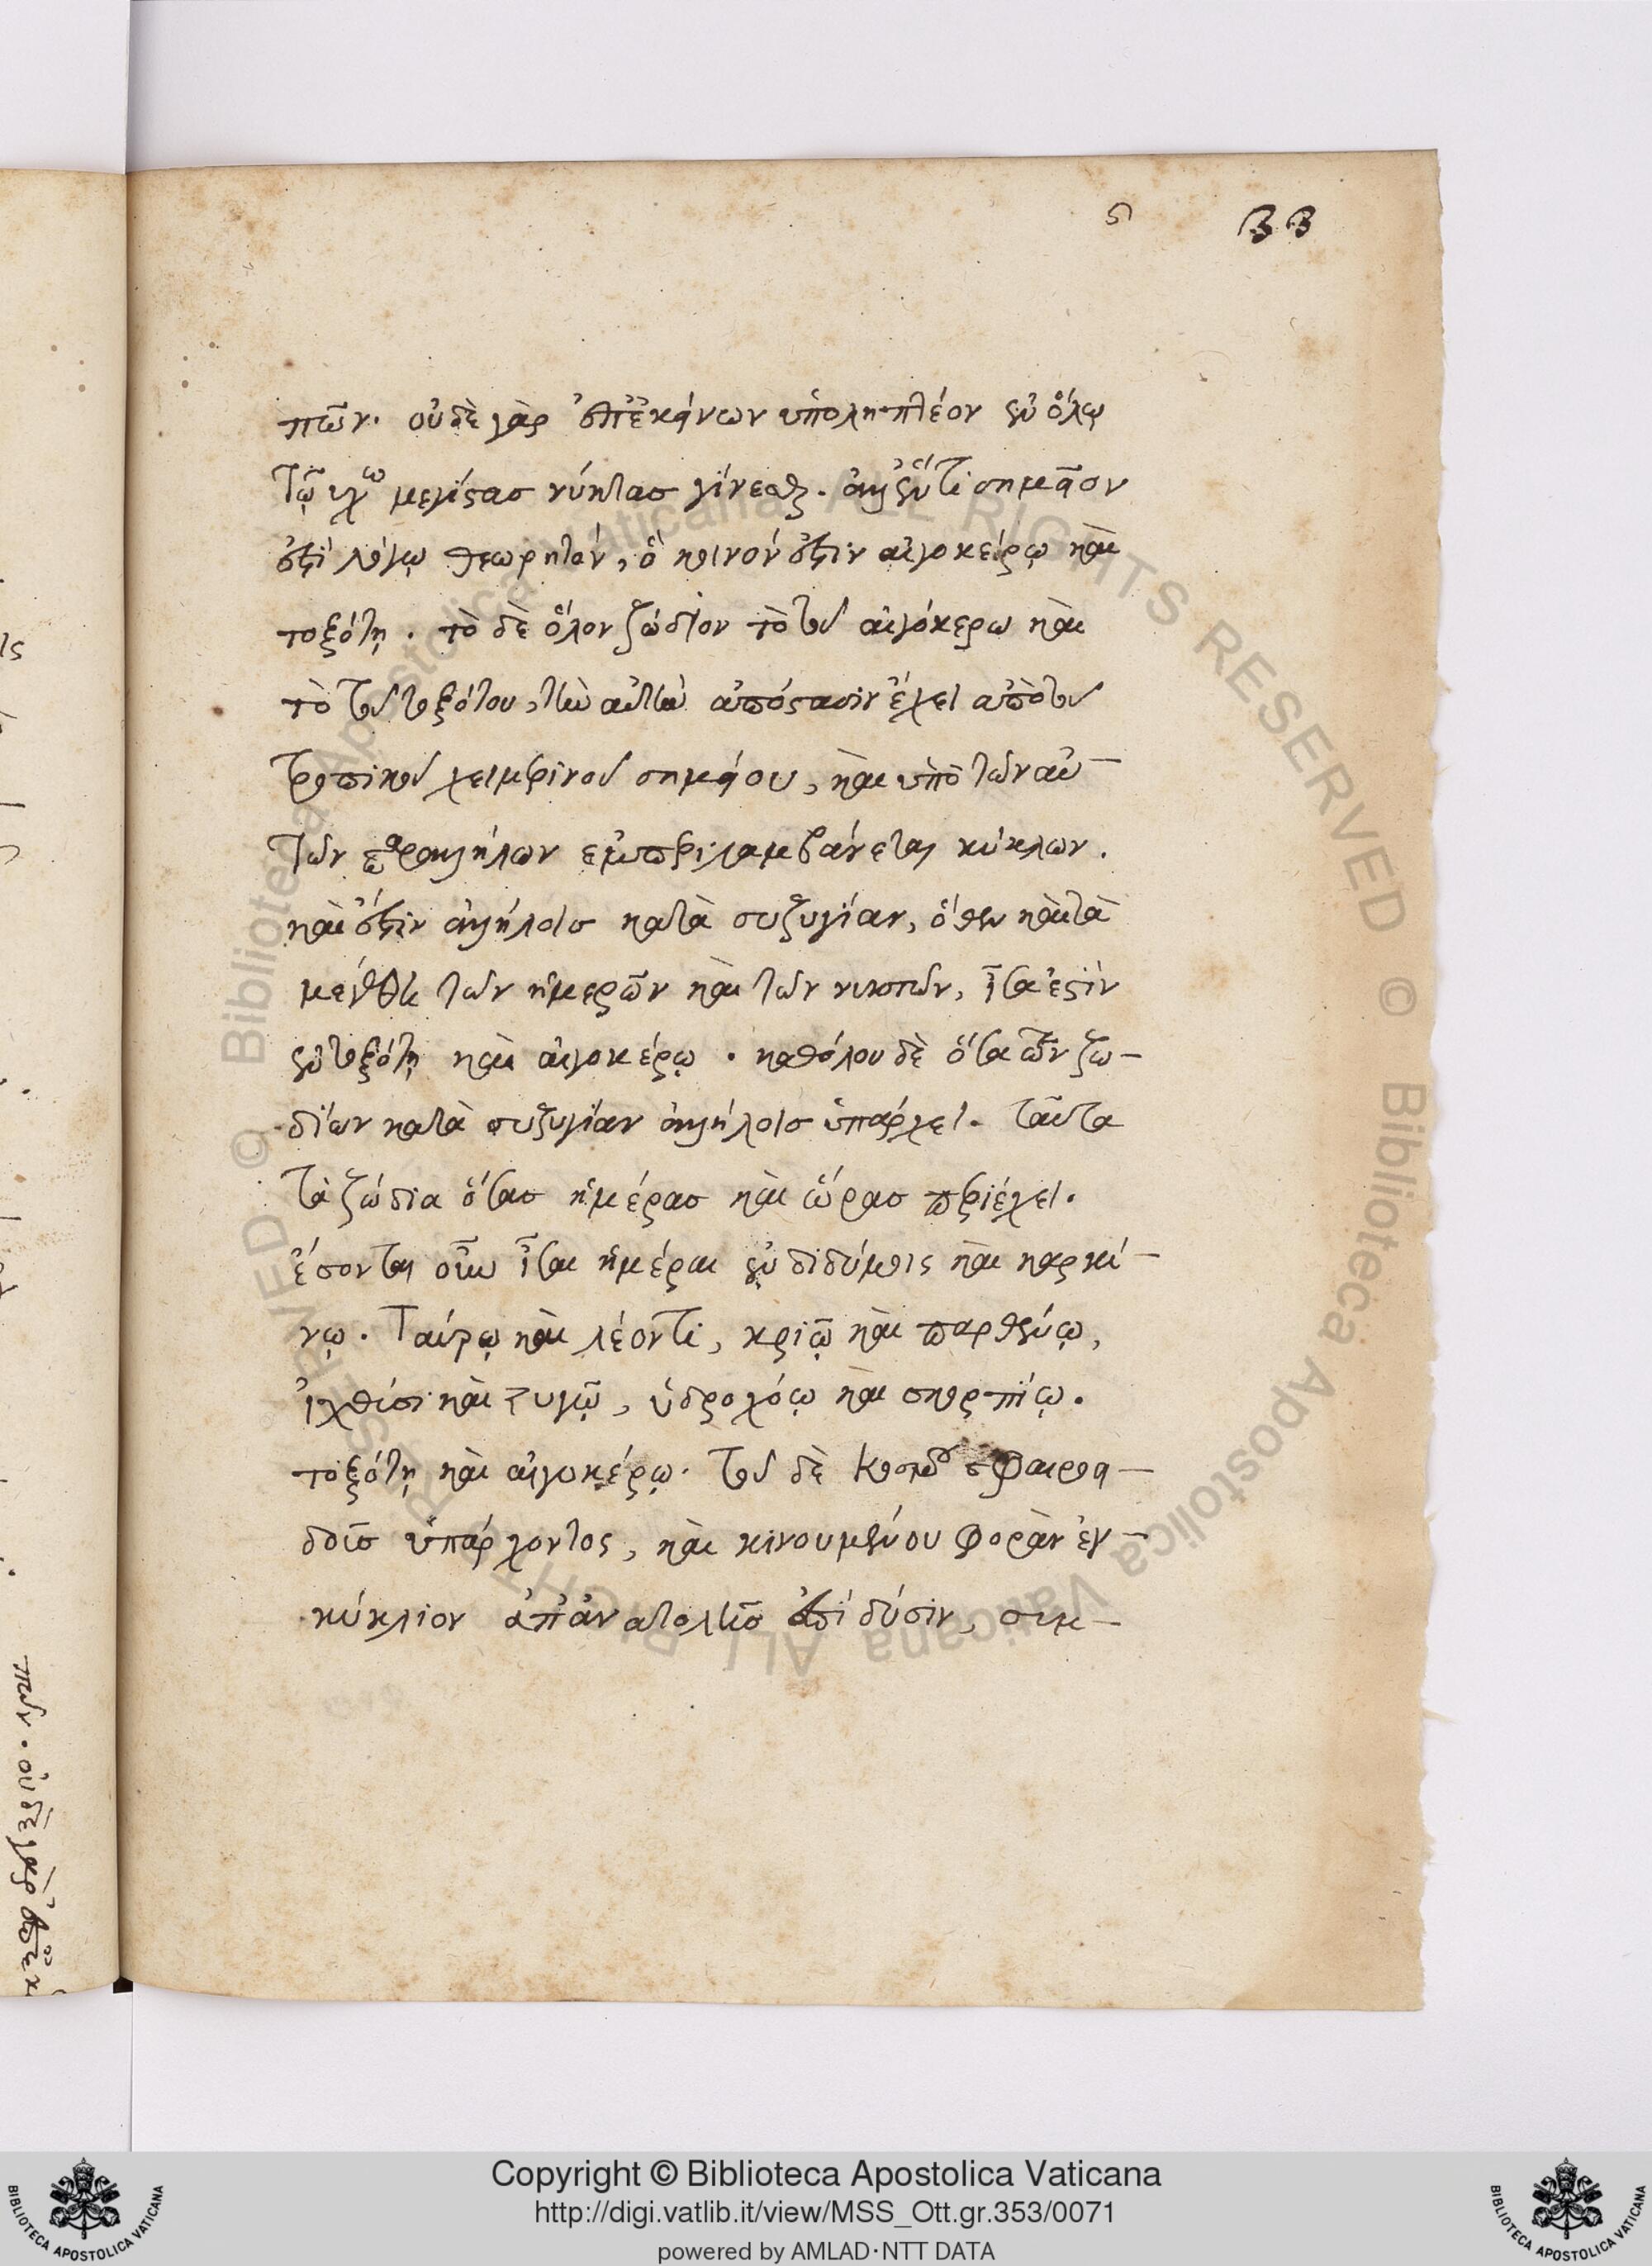 33
πῶν. οὐδὲ γὰρ ἐπ' ἐκείνων ὑποληπτέον ἐν ὅλῳ
τῷ μεγίστας νύκτας γίνεσθαι. ἀλλ' ἕν τι σημεῖον
ἐστὶ λόγῳ θεωρητόν, ὃ κοινόν ἐστιν αἰγοκείρῳ καὶ
τοξότῃ. τὸ δὲ ὅλον ζώδιον τὸ τοῦ αἰγόκερω καὶ
τὸ τοῦ τοξότου, τὴν αὐτὴν ἀπόστασιν ἔχει ἀπὸ τοῦ
τροπικοῦ χειμερινοῦ σημείου, καὶ ὑπὸ τῶν αὐ-
τῶν παραλλήλων ἐμπεριλαμβάνεται κύκλων.
καὶ ἔστιν ἀλλήλοις κατὰ συζυγίαν, ὅθεν καὶ τὰ
μεγέθη τῶν ἡμερῶν καὶ τῶν νυκτῶν, ἶσα ἐστὶν
ἐν τοξότῃ καὶ αἰγοκέρῳ. καθόλου δὲ ὅσα τῶν ζω-
δίων κατὰ συζυγίαν ἀλλήλοις ὑπάρχει. ταῦτα
τὰ ζώδια ὅσας ἡμέρας καὶ ὥρας περιέχει.
ἔσονται οὖν ἶσαι ἡμέραι ἐν διδύμοις καὶ καρκί-
νῳ. Ταύρῳ καὶ λέοντι, κριῷ καὶ παρθένῳ,
ἰχθύσι καὶ ζυγῷ, ὑδροχόῳ καὶ σκορπίῳ.
τοξότῃ καὶ αἰγοκέρῳ. τοῦ δὲ κόσμου σφαιροει-
δοῦς ὑπάρχοντος, καὶ κινουμένου φορὰν ἐγ-
κύκλιον ἀπ' ἀνατολῆς ἐπὶ δύσιν, συμ-
πῶν. οὐδὲ γὰρ ἐπ' ἐκ
© Biblioteca Apostolica Vaticana ALL RIGHTS RESERVED © Biblioteca Apostolica Vaticana ALL RIGHTS RESERVED
Copyright © Biblioteca Apostolica Vaticana
http://digi.vatlib.it/view/MSS_Ott.gr.353/0071
powered by AMLAD·NTT DATA
BIBLIOTECA APOSTOLICA VATICANA
BIBLIOTECA APOSTOLICA VATICANA